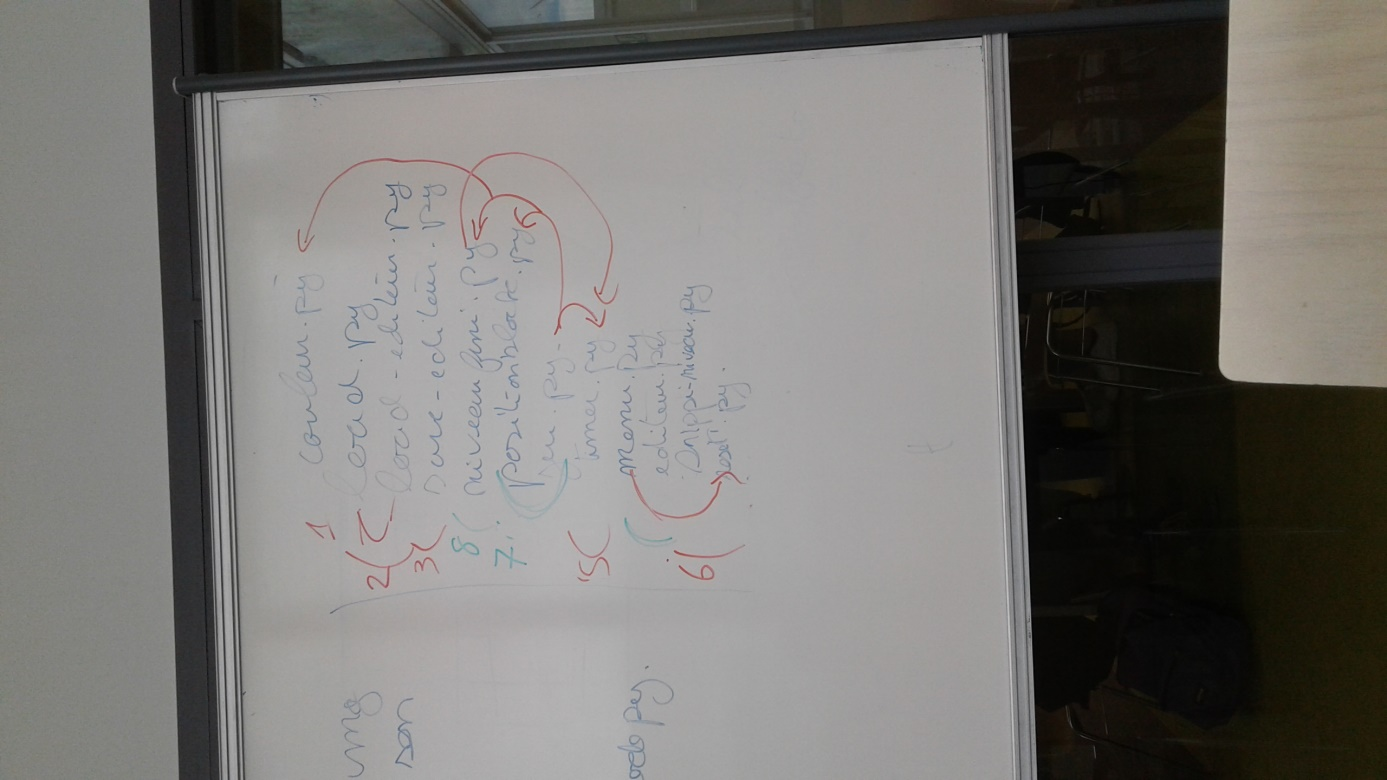 1 couleur.py
2( load.py
load-editeur.py
3( save-editeur.py
8( niveaufini.py
7. positionblock.py
jeu.py
5( timer.py
menu.py
editeur.py
6(
reset.py.
img
son